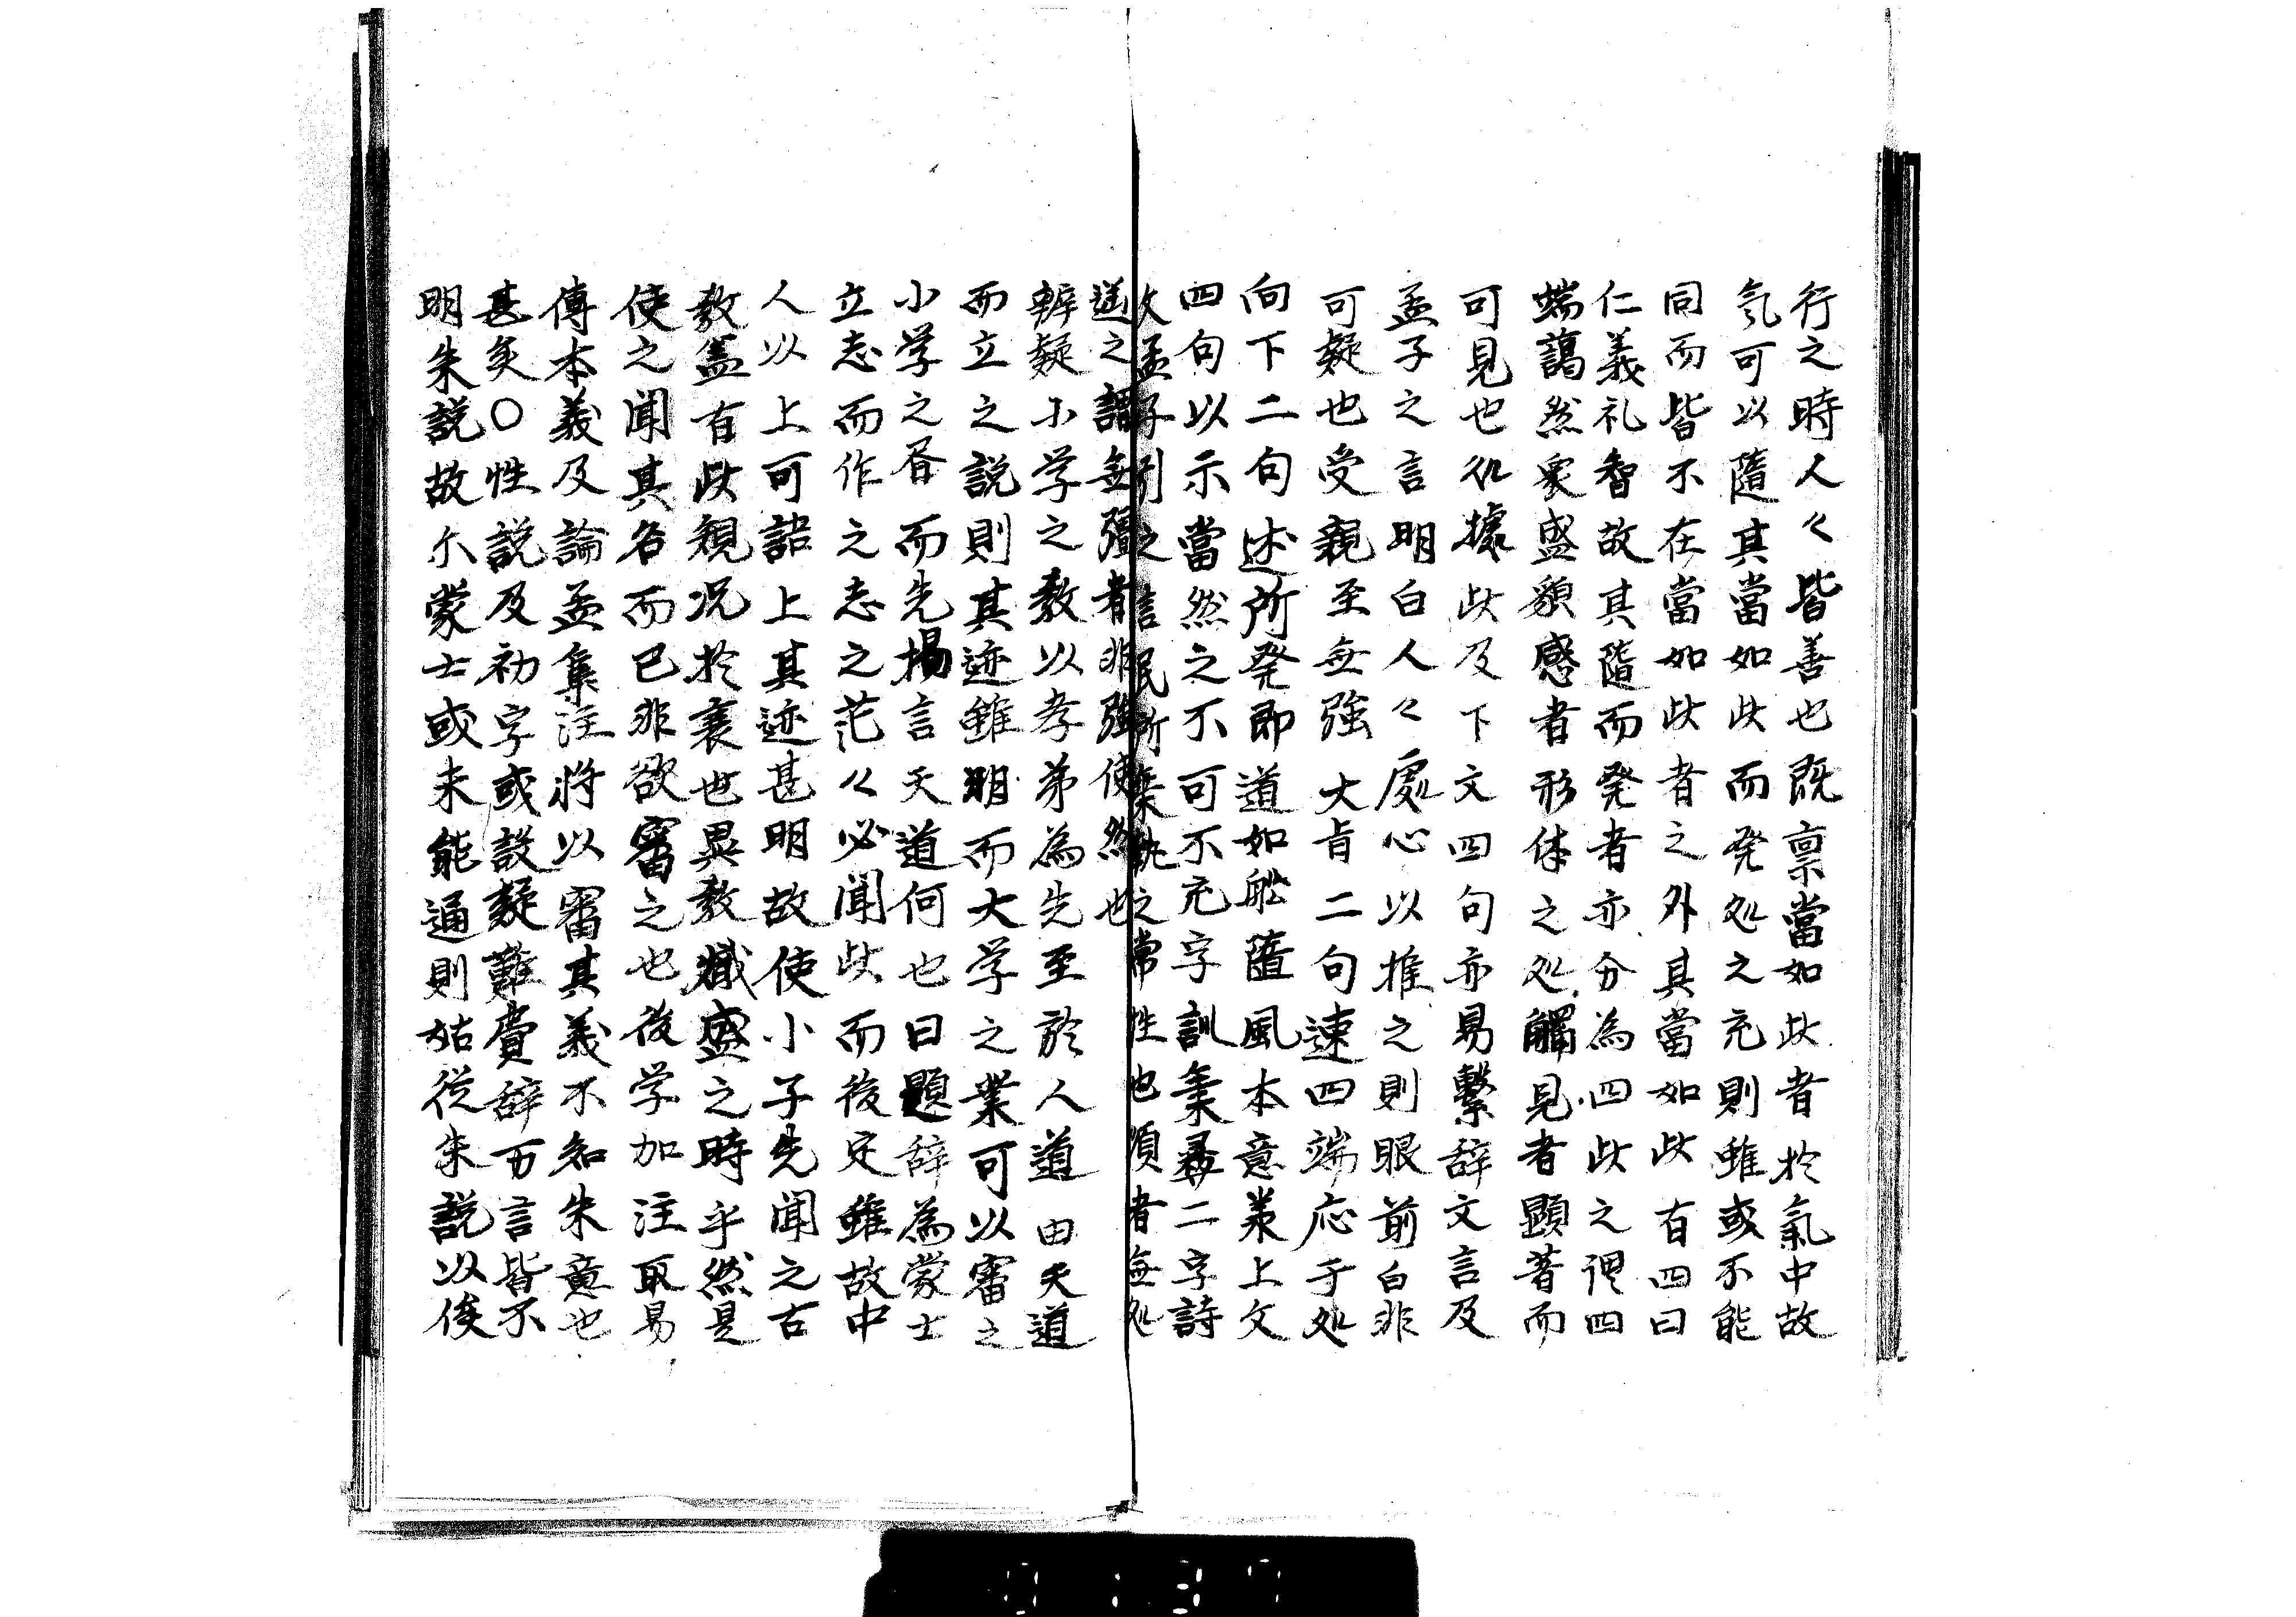 行之時人々皆善也既稟當如此者於氣中故
氣可以隨其當如此而発処之充則雖或不能
同而皆不在當如此者之外其當如此有四曰
仁義礼智故其隨而発者亦分為四此之謂四
端藹然衆盛貌感者形体之処觸見者顕著而
可見也処據此及下文四句亦易繫辞文言及
孟子之言明白人々處心以推之則眼前白非
可疑也受親至無強大旨二句速四端応于処
向下二句述所発即道如𦨞隨風本意業上文
四句以示當然之不可不充字訓秉彝二字詩
文孟子引之言民所秉執之常性也須者無処
逆之謂無彊者非強使然也
辨疑小学之教以孝弟為先至於人道由天道
而立之説則其迹雖明而大学之業可以審之
小学之昏而先揚言天道何也曰題辞為蒙士
立志而作之志之茫々必聞此而後定雖故中
人以上可語上其迹甚明故使小子先聞之古
教盖有此観況於衰世異教熾盛之時乎然是
使之聞其名而已非欲審之也後学加注取易
傳本義及論孟集注将以審其義不知朱意也
甚矣〇性説及初字或設疑難費辞万言皆不
明朱説故尓蒙士或未能通則姑従朱説以俟